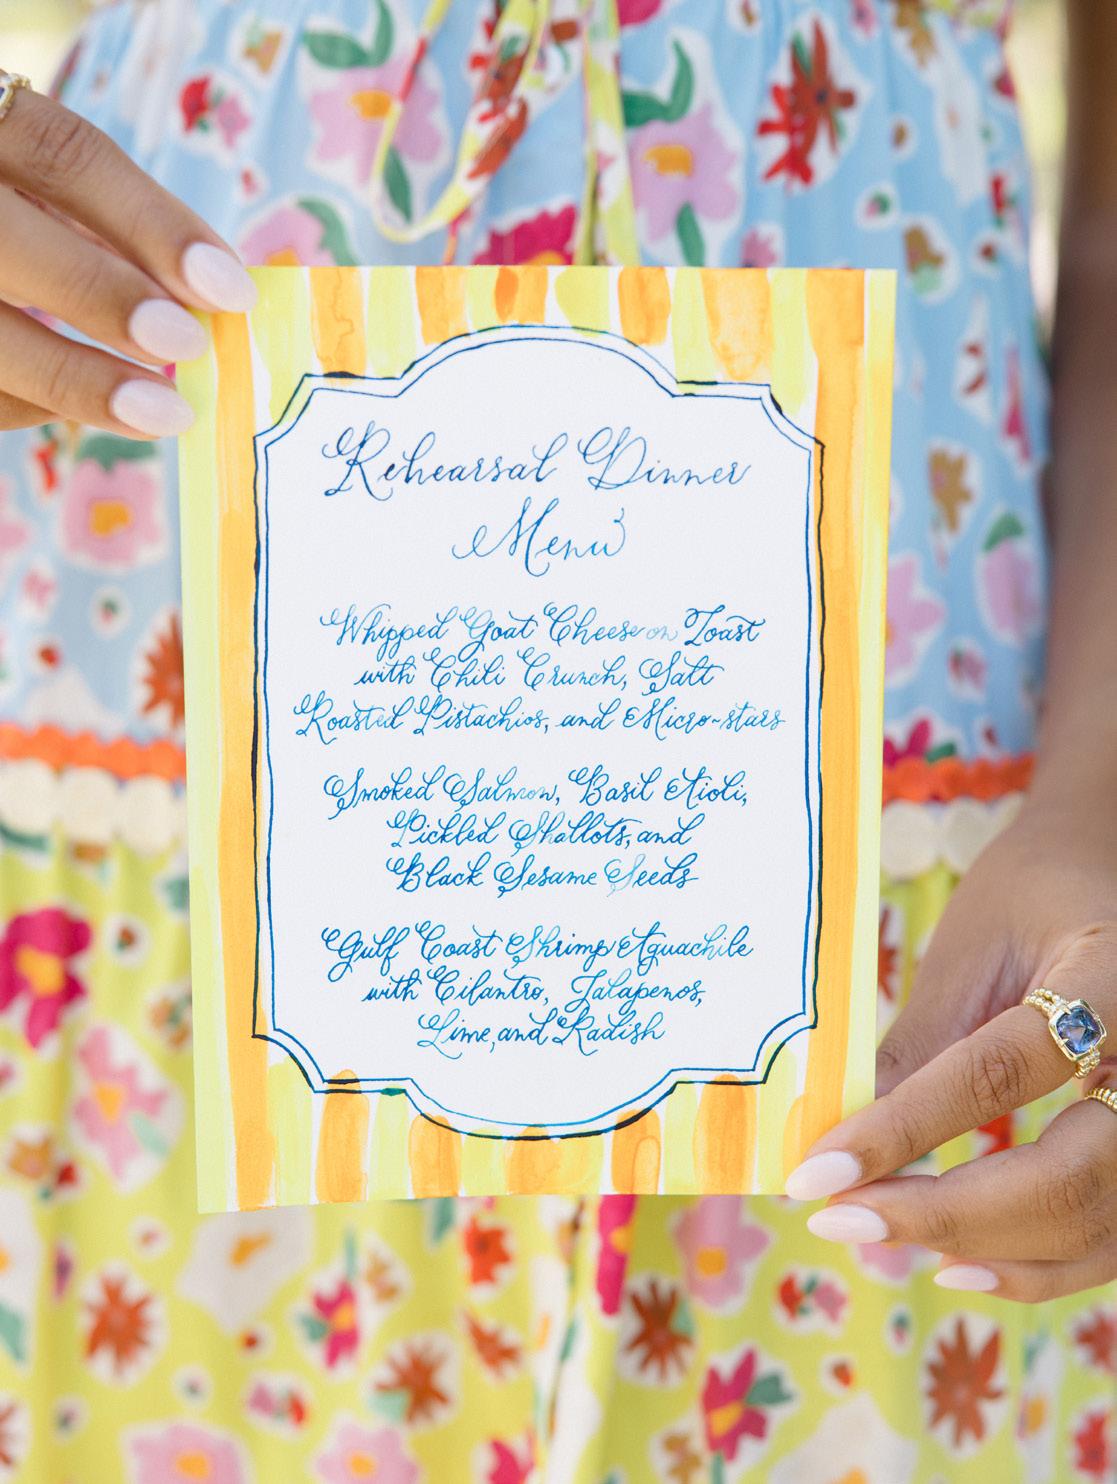 Rehearsal Dinner
Menu
Whipped Goat Cheese on Toast
with Chili Crunch, Salt
Roasted Pistachios, and Micro-stars
Smoked Salmon, Basil Aioli,
Pickled Shallots, and
Black Sesame Seeds
Gulf Coast Shrimp Aguachile
with Cilantro, Jalapenos,
Lime, and Radish